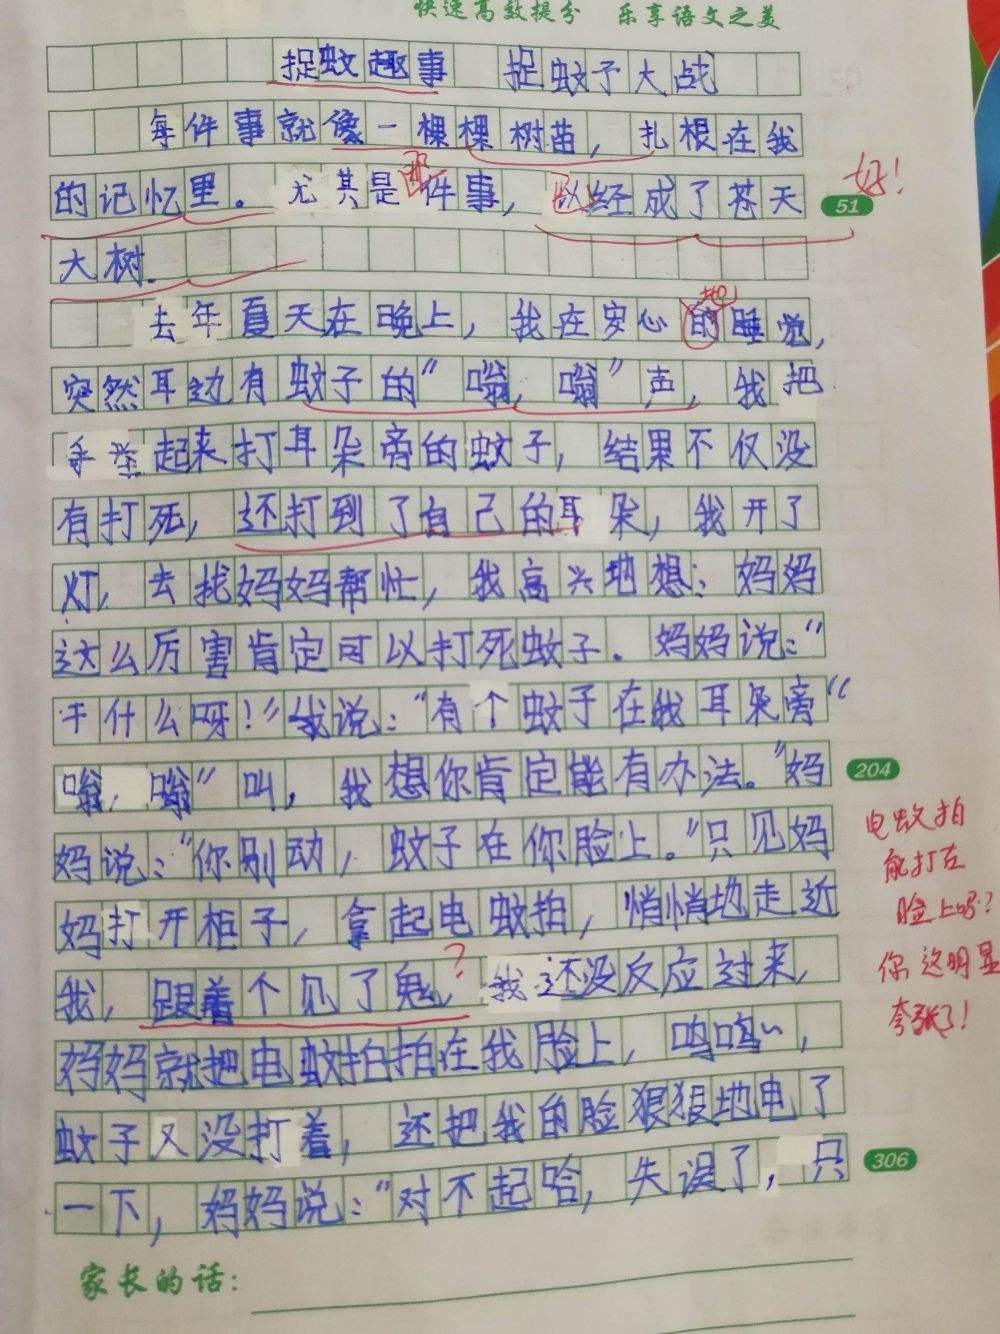 快速高效提分 乐享语文之美
捉蚊趣事 捉蚊子大战
每件事就像一棵棵树苗，扎根在我
的记忆里。尤其是那件事，以经成了苍天
好！
51
大树.
去年夏天在晚上，我在安心的睡觉，
地
突然耳边有蚊子的“嗡，嗡”声，我把
手举起来打耳朵旁的蚊子，结果不仅没
有打死，还打到了自己的耳朵，我开了
灯，去找妈妈帮忙，我高兴地想：妈妈
这么厉害肯定可以打死蚊子．妈妈说：“
干什么呀！”我说：“有个蚊子在我耳朵旁“
嗡，嗡”叫，我想你肯定能有办法。”妈
204
妈说：“你别动，蚊子在你脸上。”只见妈
妈打开柜子，拿起电蚊拍，悄悄地走近
我，跟着个见了鬼，我还没反应过来，
？
妈妈就把电蚊拍拍在我脸上，呜呜~，
蚊子又没打着，还把我的脸狠狠地电了
一下，妈妈说：“对不起哈，失误了，只
306
电蚊拍
能打在
脸上吗？
你这明显
夸张了！
家长的话：